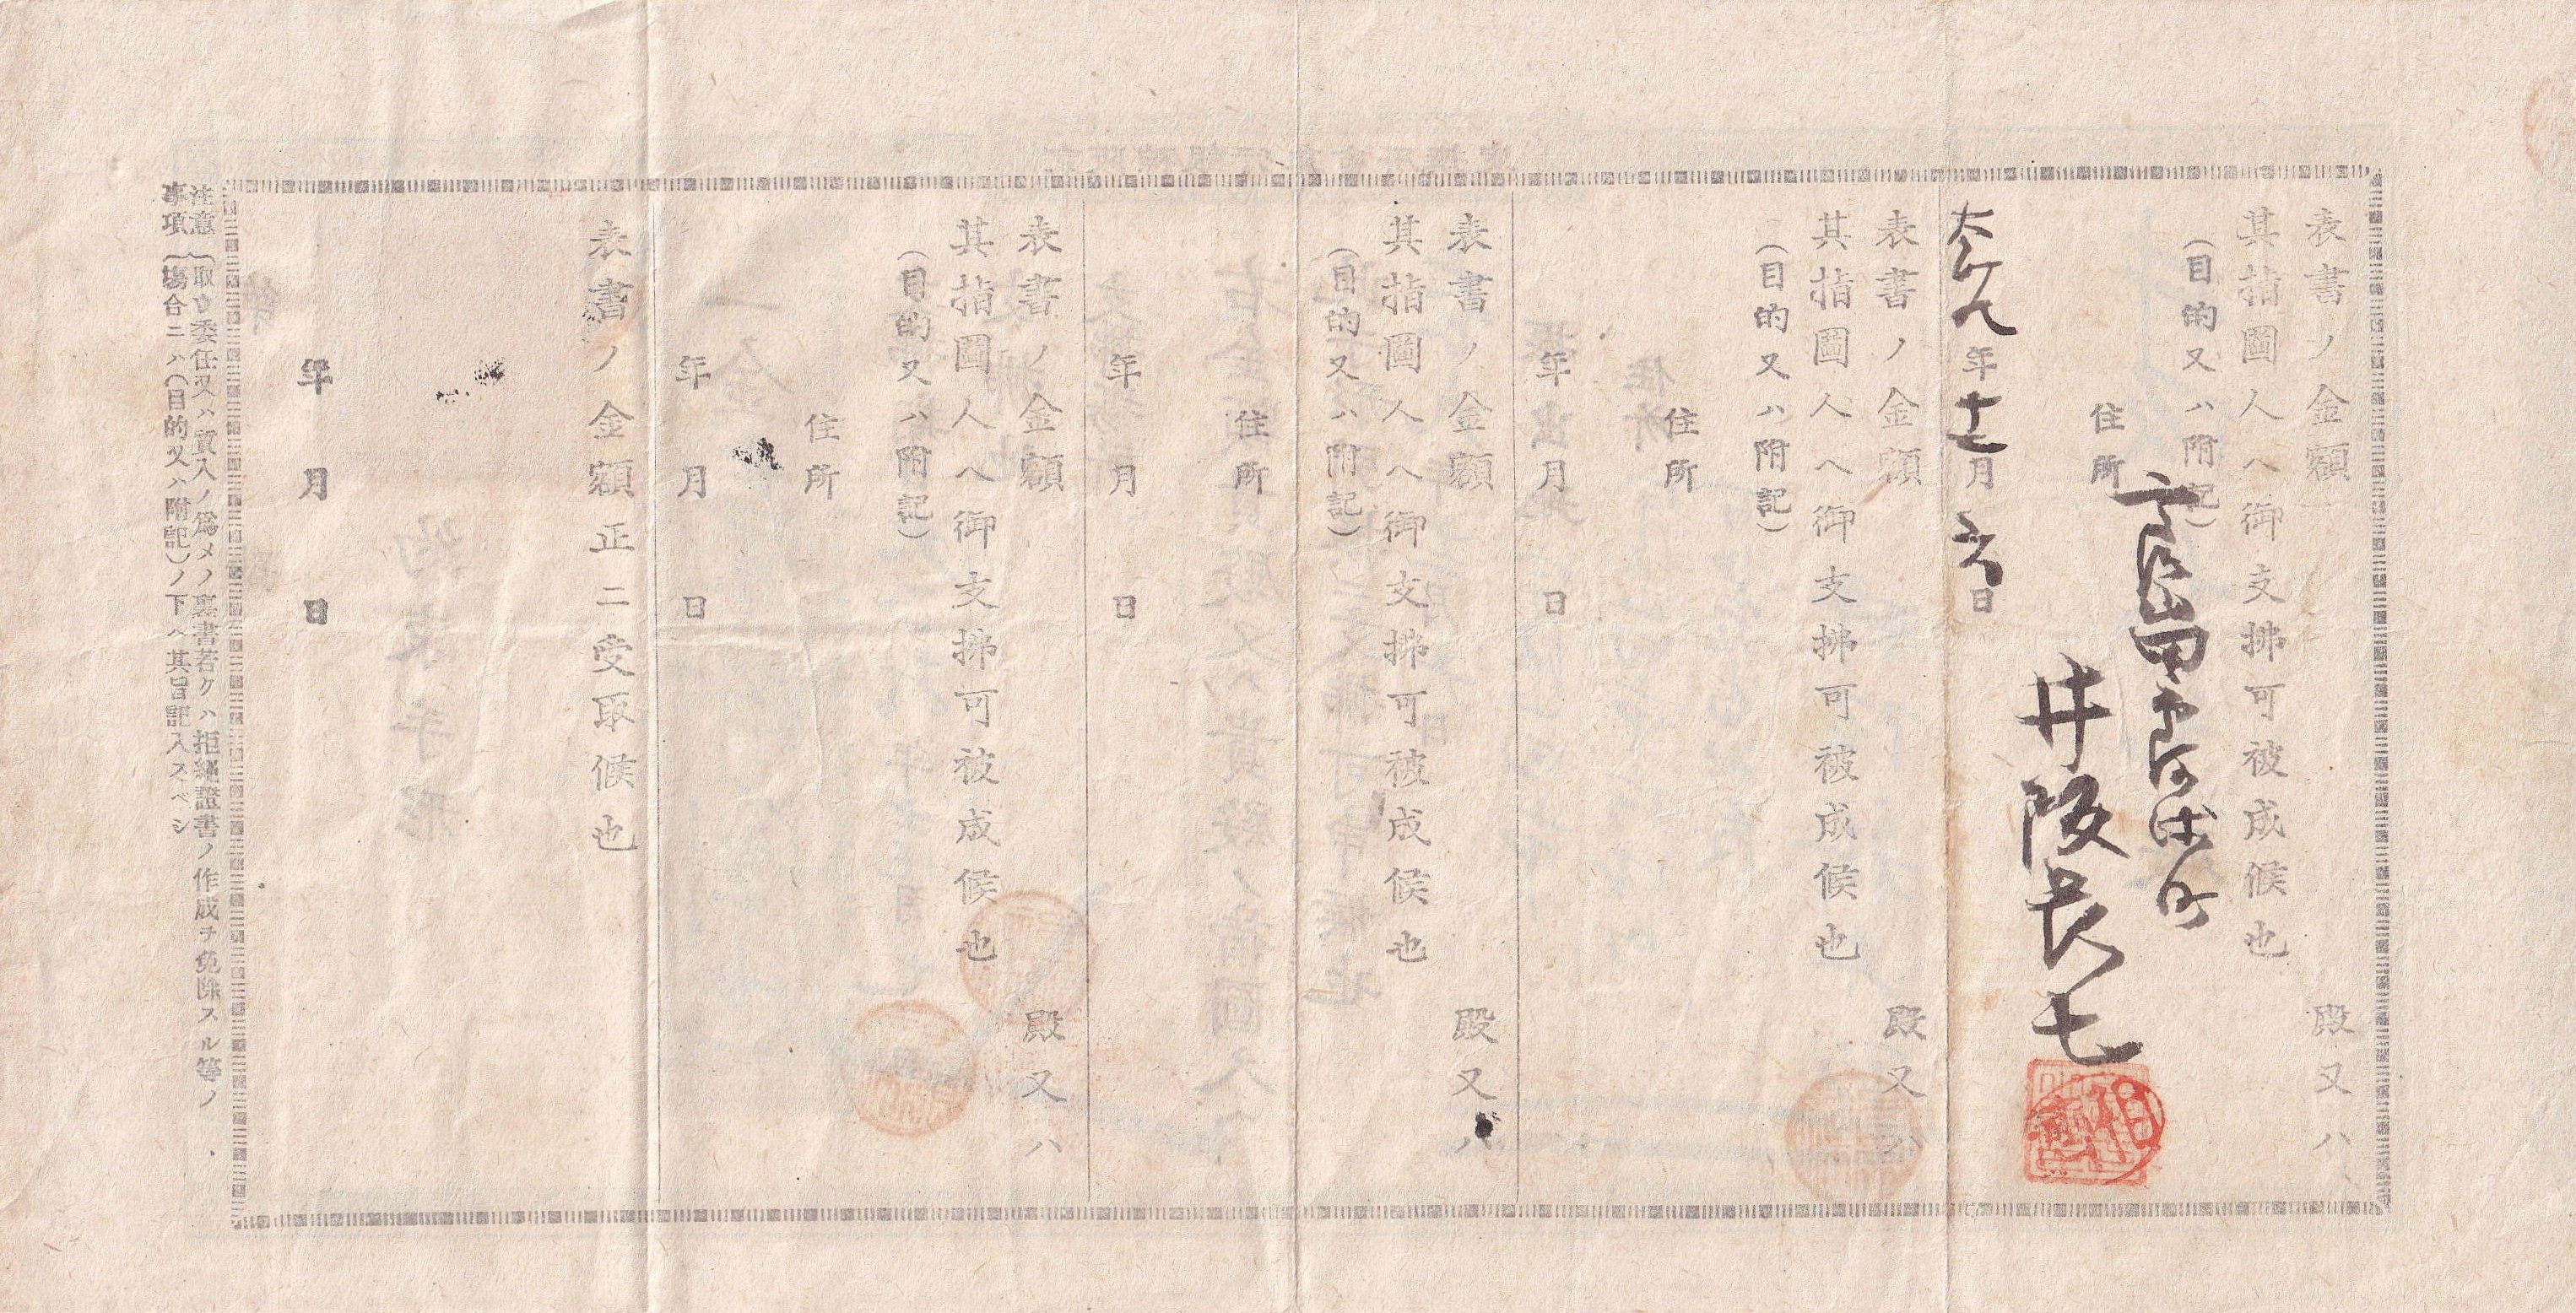 表書ノ金額
殿又ハ
其指圖人ヘ御支拂可被成候也
(目的又ハ附記)
住所
井阪長七
大正八年十二月六日
表書ノ金額
殿又ハ
其指圖人ヘ御支拂可被成候也
(目的又ハ附記)
住所
年月日
表書ノ金額
殿又ハ
其指圖人ヘ御支拂可被成候也
(目的又ハ附記)
住所
年月日
表書ノ金額
殿又ハ
其指圖人ヘ御支拂可被成候也
(目的又ハ附記)
住所
年月日
表書ノ金額正ニ受取候也
年月日
注意(取立委任又ハ質入ノ爲メノ裏書若クハ拒絶證書ノ作成ヲ免除スル等ノ
事項(塲合ニハ(目的又ハ附記)ノ下ヘ其旨記入スベシ